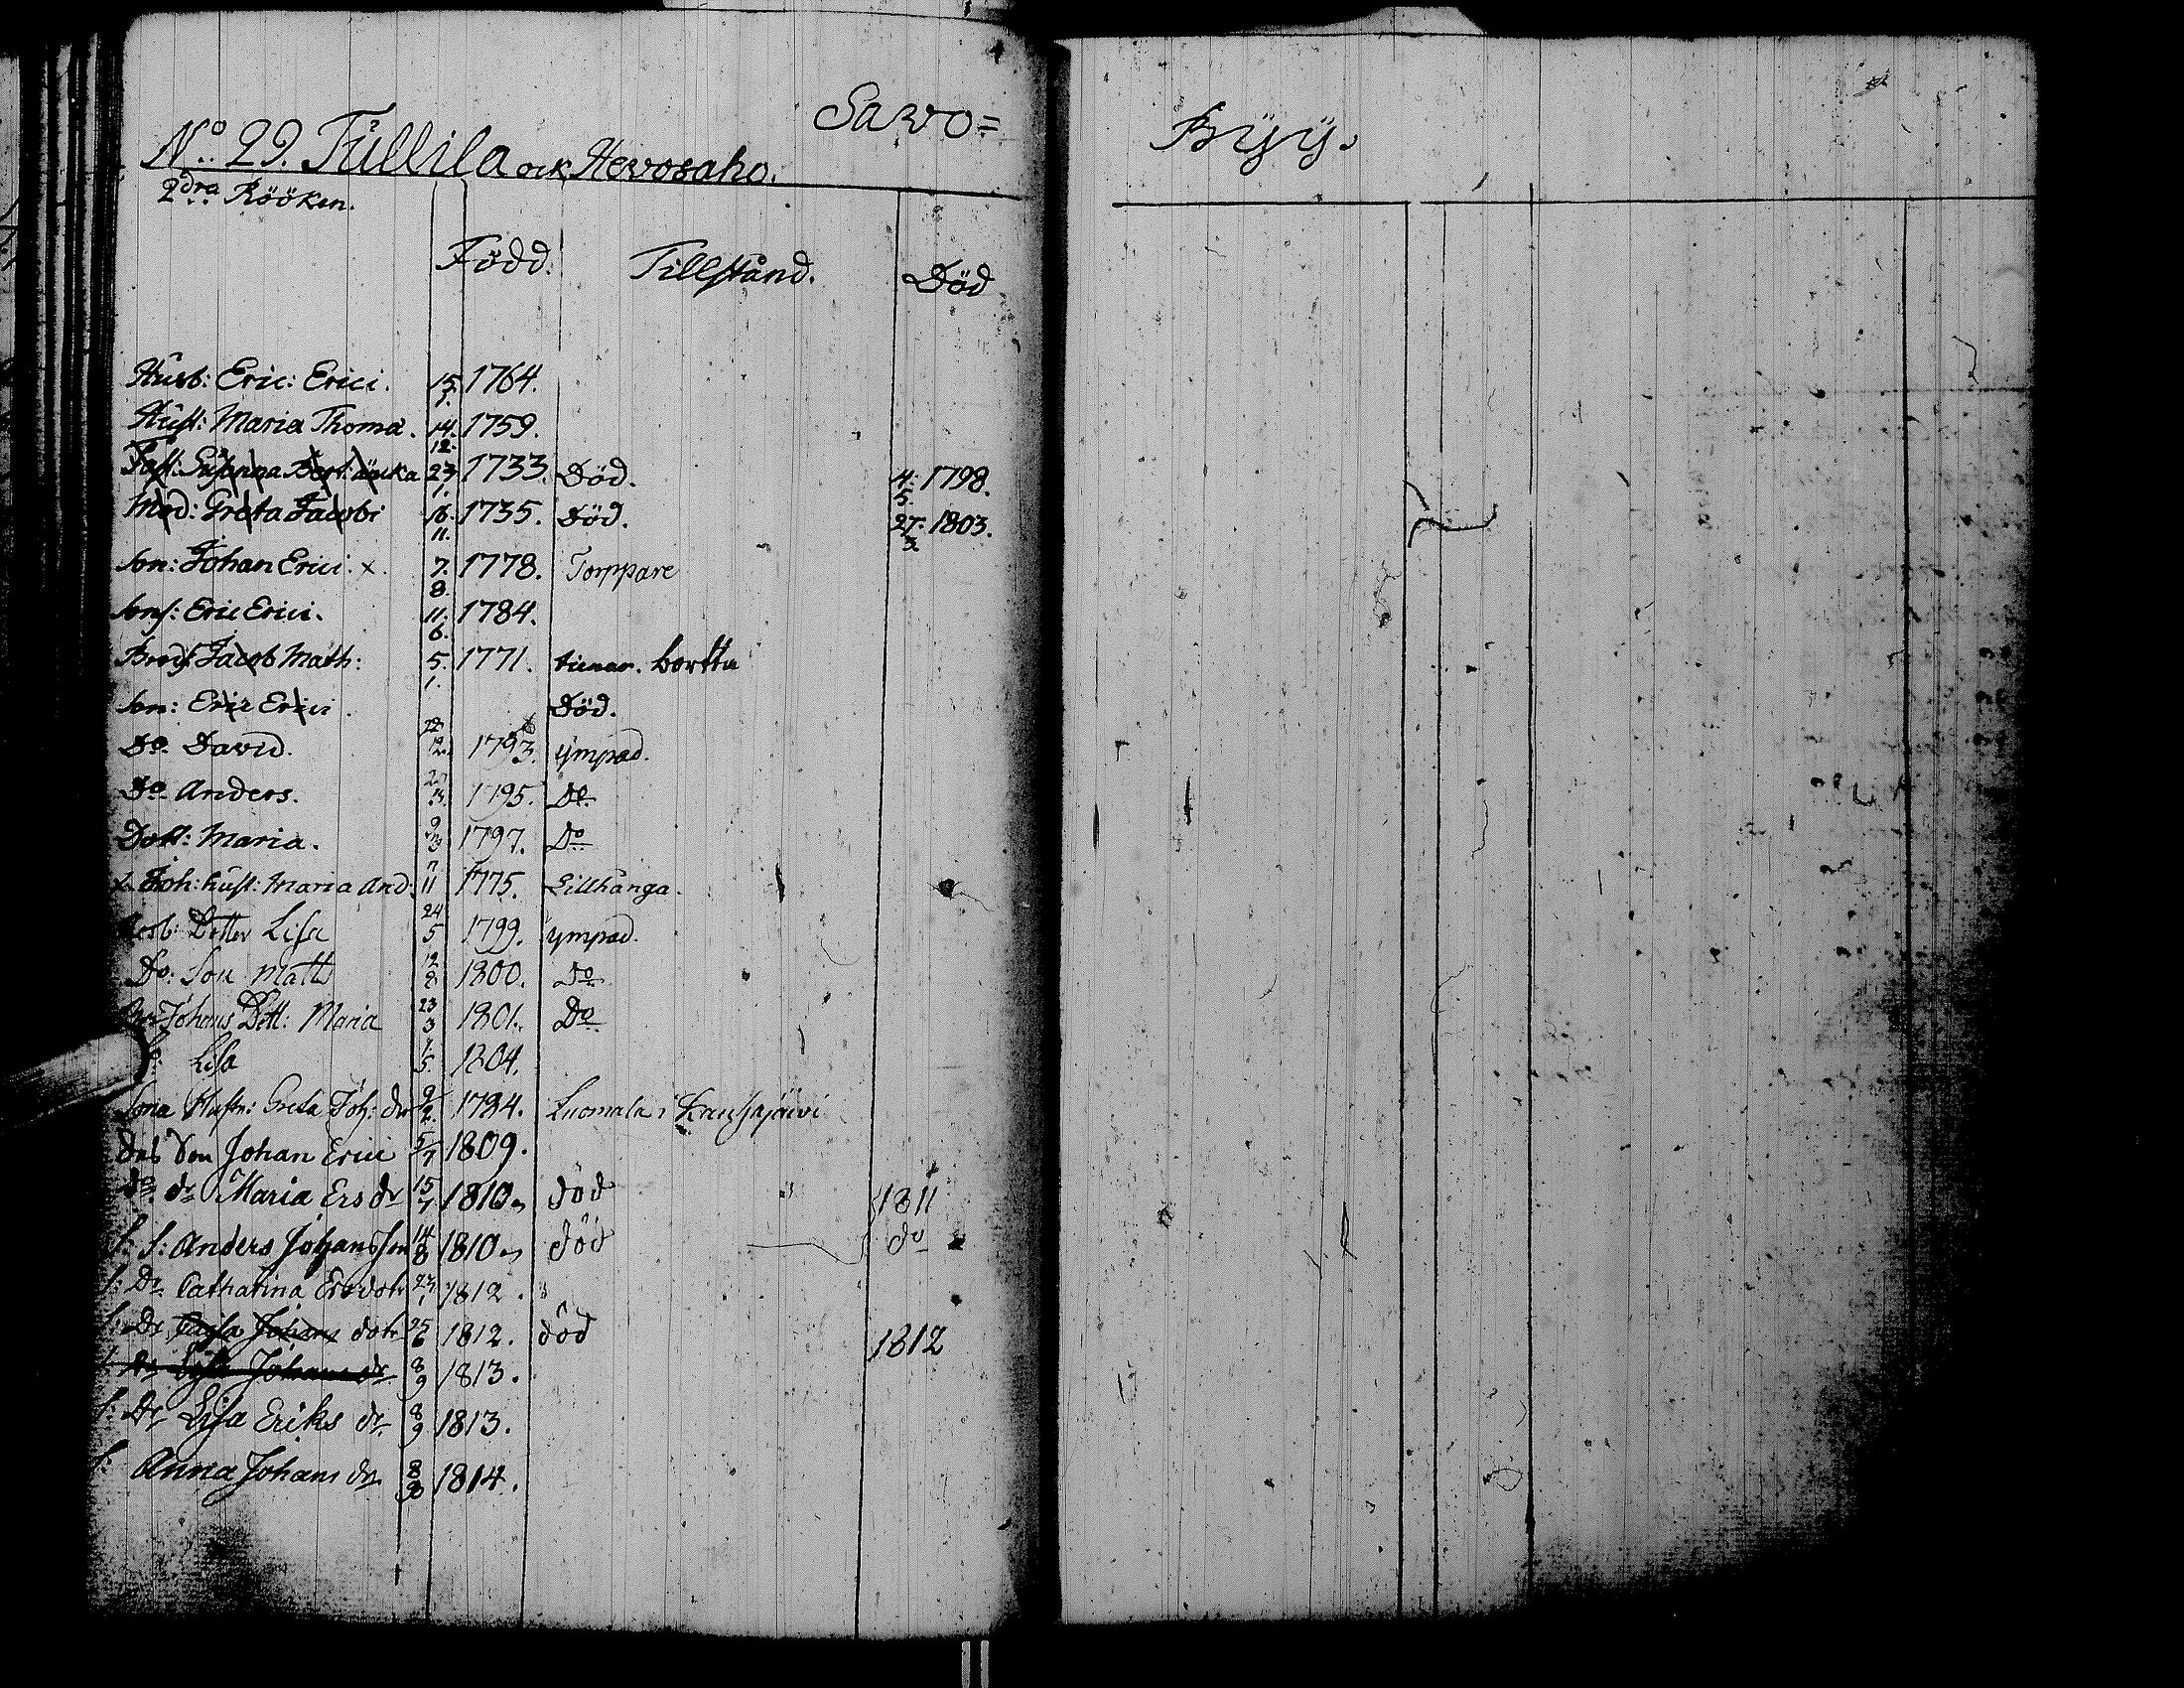 Savo=
Byy.
No 29. Tullila ock Hevosaho.
2dra Rööken.
Född. Tillstånd. Död
Husb: Eric: Erici. 15. 1. 1764.
Hust: Maria Thomæ. 14. 12. 1759.
Susanna änka 23. 1. 1733. Död. 4. 5. 1798.
Mod: Greta Jacobi 16. 11. 1735. Död. 27. 3. 1803.
Son: Johan Erici. x. 7. 8. 1778. Torppare
Sons: Eric Erici. 11. 6. 1784.
Jacob Math: 5. 1. 1771. bortta
Son: Eric Erici. Död.
Do David. 12. 1793. ympad.
Do Anders. 1795. Do
Dott: Maria. 9 3 1797. Do
x Joh: hust: Maria And: 7 11 1775. Lillhänga.
Dotter Lisa 24 5 1799. ympad.
Do: Son Matts 12 8 1800. Do
Johans Dott: Maria 23 3 1801. Do
Lisa 1 5. 1804.
Sona Hustr: Greta Joh: dr 9 2. 1784. Luomala i Kauhajärvi
Des Son Johan Erici 5/7 1809.
Do dr Maria Ers dr 15 7 1810. död 1811
S: S: Anders Johansson 14 8 1810. död do
S: Dr Catharina Ersdotr 23 1 1812.
S: Dr Caisa Johans dotr 25 6 1812. död 1812
Dr Lisa Johans dr 8 9 1813.
S: Dr Lisa Eriks dr. 8 9 1813.
S: Anna Johans dr 8 1814.